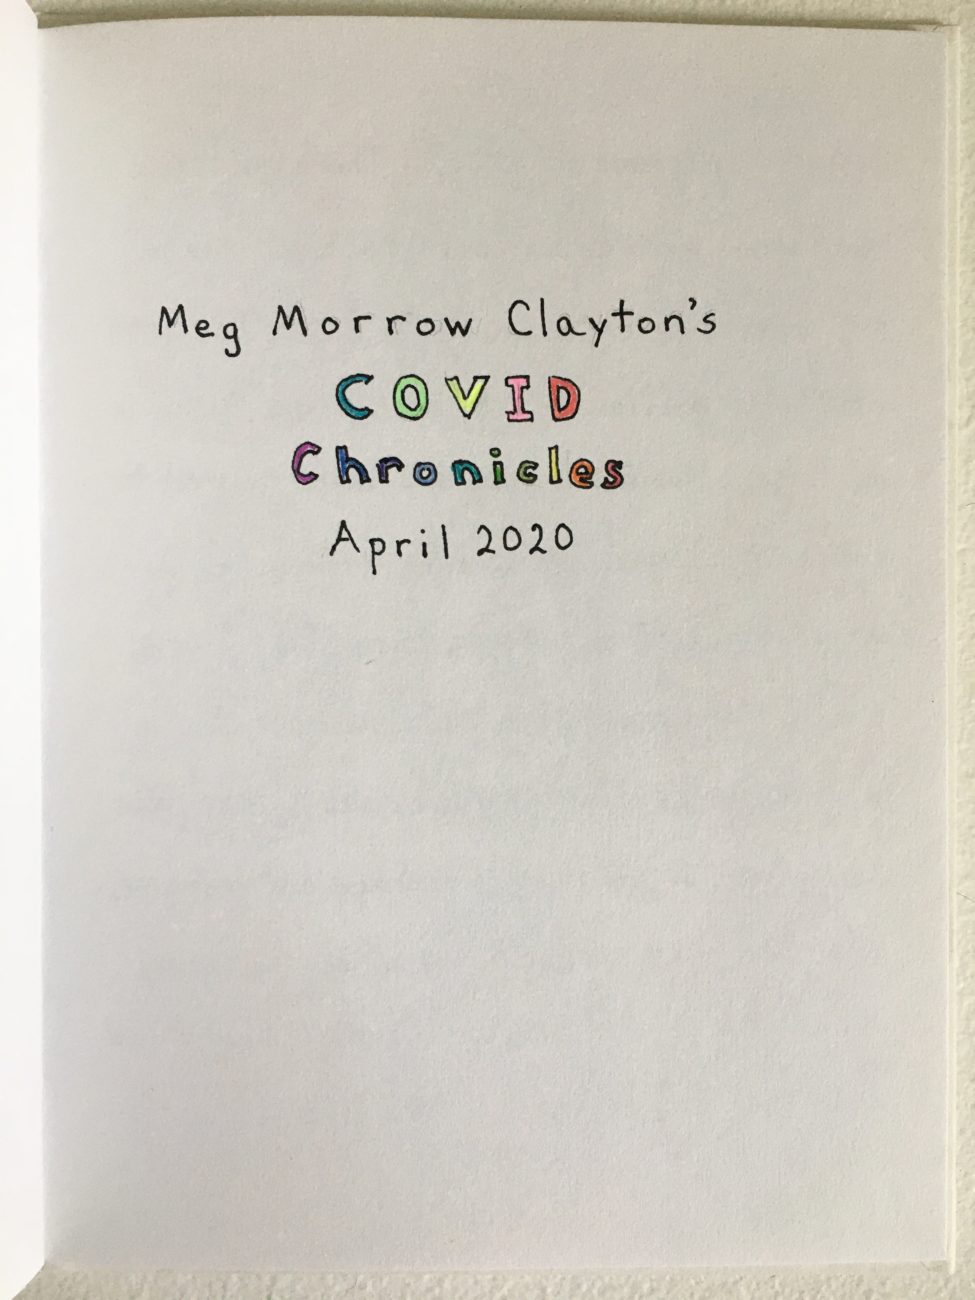 Meg Morrow Clayton's
COVID
Chronicles
April 2020